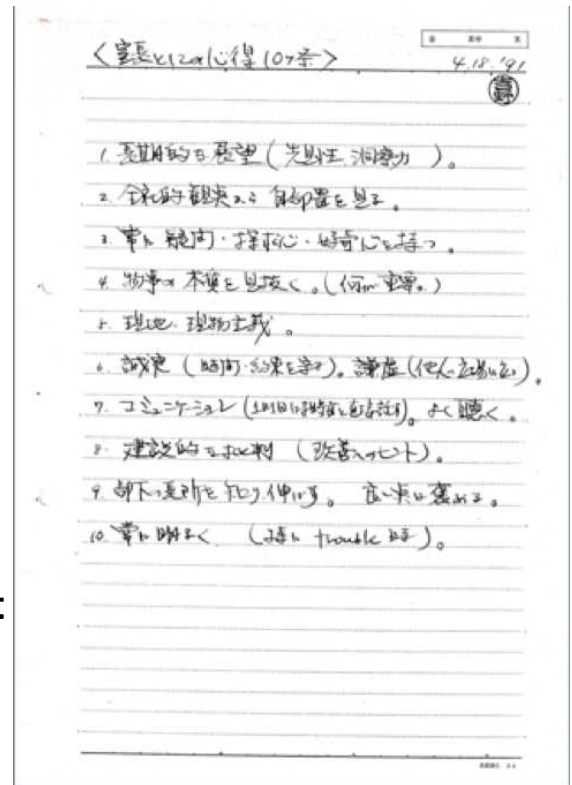 〈室長としての心得10ヶ条〉
4.18.'91
1. 長期的な展望(先見性、洞察力)。
2. 全社的観点から自部署を見る。
3. 常に疑問・探求心・好奇心を持つ。
4. 物事の本質を見抜く。(何が重要。)
5. 現地・現物主義。
6. 誠実(時間・約束を守る)。謙虚(他人の立場に立つ)。
7. コミュニケーション(1日1回は)。よく聴く。
8. 建設的な批判(改善へのヒント)。
9. 部下の長所を知り伸ばす。良い点は褒める。
10. 常に明るく(特に trouble 時)。